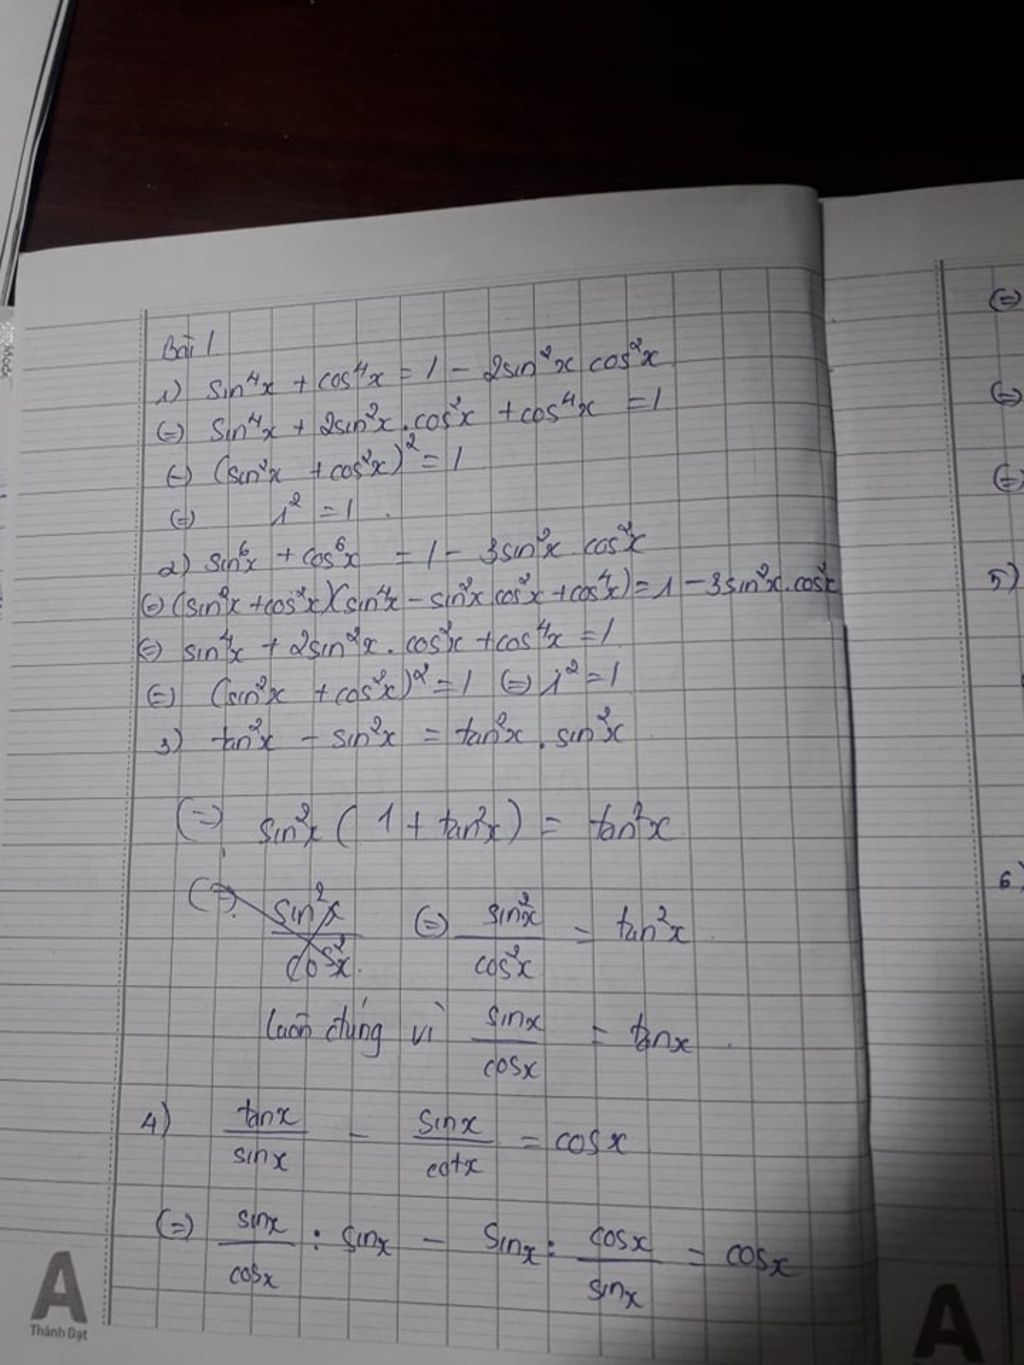 Bài 1
1) sin⁴x + cos⁴x = 1 - 2sin²x cos²x
(=) sin⁴x + 2sin²x . cos²x + cos⁴x = 1
(=) (sin²x + cos²x)² = 1
(=) 1² = 1 .
2) sin⁶x + cos⁶x = 1 - 3sin²x cos²x
(=) (sin²x + cos²x)(sin⁴x - sin²x cos²x + cos⁴x) = 1 - 3sin²x . cos²x
(=) sin⁴x + 2sin²x . cos²x + cos⁴x = 1
(=) (sin²x + cos²x)² = 1 (=) 1² = 1
3) tan²x - sin²x = tan²x . sin²x
(=) sin²x ( 1 + tan²x ) = tan²x
(=) sin²x / cos²x (=) sin²x / cos²x = tan²x
luôn đúng vì sinx / cosx = tanx .
4) tanx / sinx - sinx / cotx = cosx
(=) sinx / cosx : sinx - sinx : cosx / sinx = cosx
A
Thành Đạt
(=)
(=)
(=)
5)
6)
A